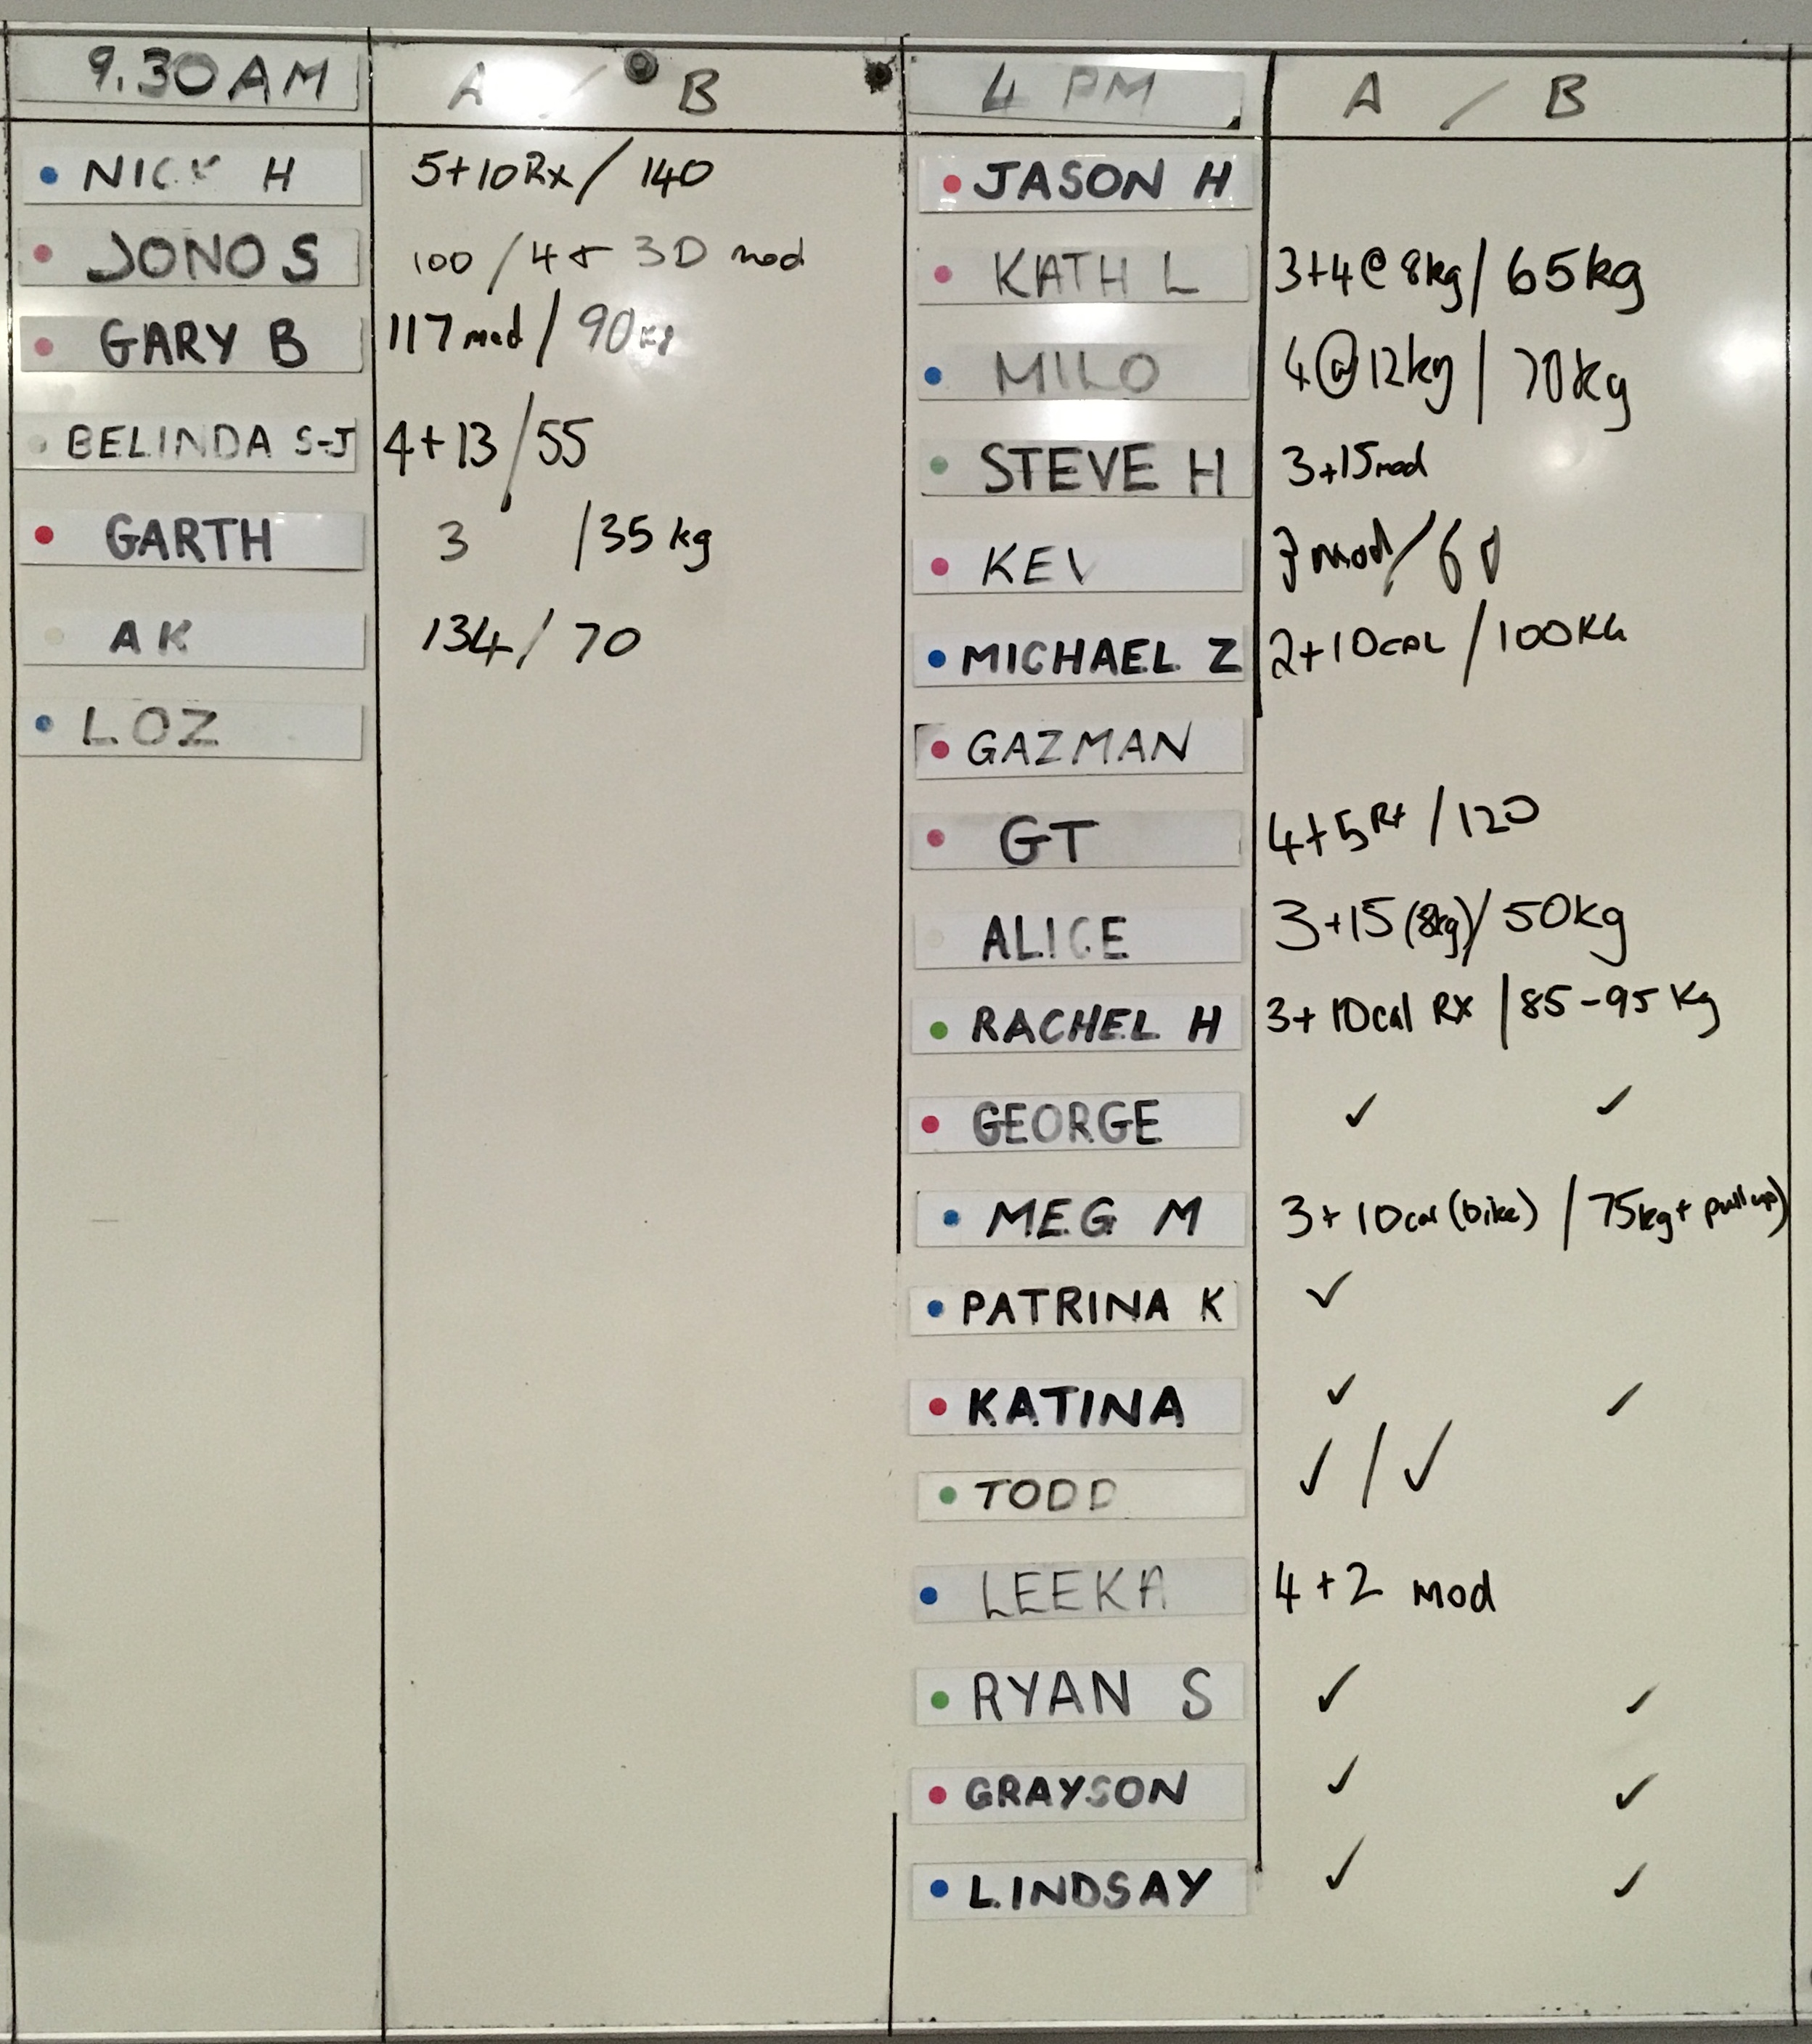 9.30AM A / B
NICK H 5+10Rx / 140
JONO S 100 / 4+ 30 mod
GARY B 117 mod / 90kg
BELINDA S-J 4+13 / 55
GARTH 3 / 35 kg
AK 134 / 70
LOZ
4 PM A / B
JASON H
KATH L 3+4@8kg / 65kg
MILO 4@12kg / 70kg
STEVE H 3+15mod
KEV mod / 60
MICHAEL Z 2+10CAL / 100KG
GAZMAN
GT 4+5Rx / 120
ALICE 3+15 (8kg) / 50kg
RACHEL H 3+10cal RX / 85-95 Kg
GEORGE ✓ ✓
MEG M 3+10cal (bike) / 75kg+ pull up)
PATRINA K ✓
KATINA ✓ ✓
TODD ✓ / ✓
LEEKA 4+2 mod
RYAN S ✓ ✓
GRAYSON ✓ ✓
LINDSAY ✓ ✓